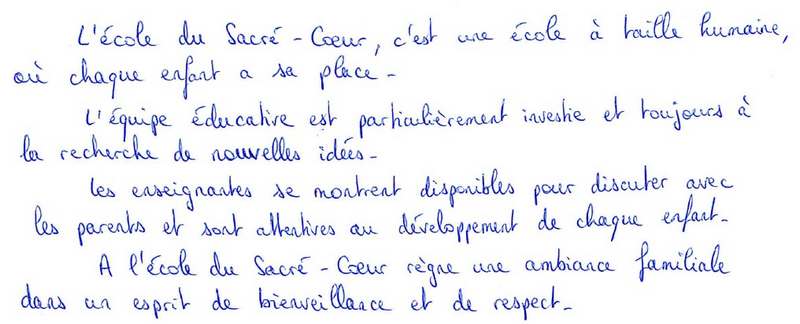 L'école du Sacré-Cœur, c'est une école à taille humaine,
où chaque enfant a sa place.
L'équipe éducative est particulièrement investie et toujours à
la recherche de nouvelles idées.
Les enseignantes se montrent disponibles pour discuter avec
les parents et sont attentives au développement de chaque enfant.
A l'école du Sacré-Cœur règne une ambiance familiale
dans un esprit de bienveillance et de respect.